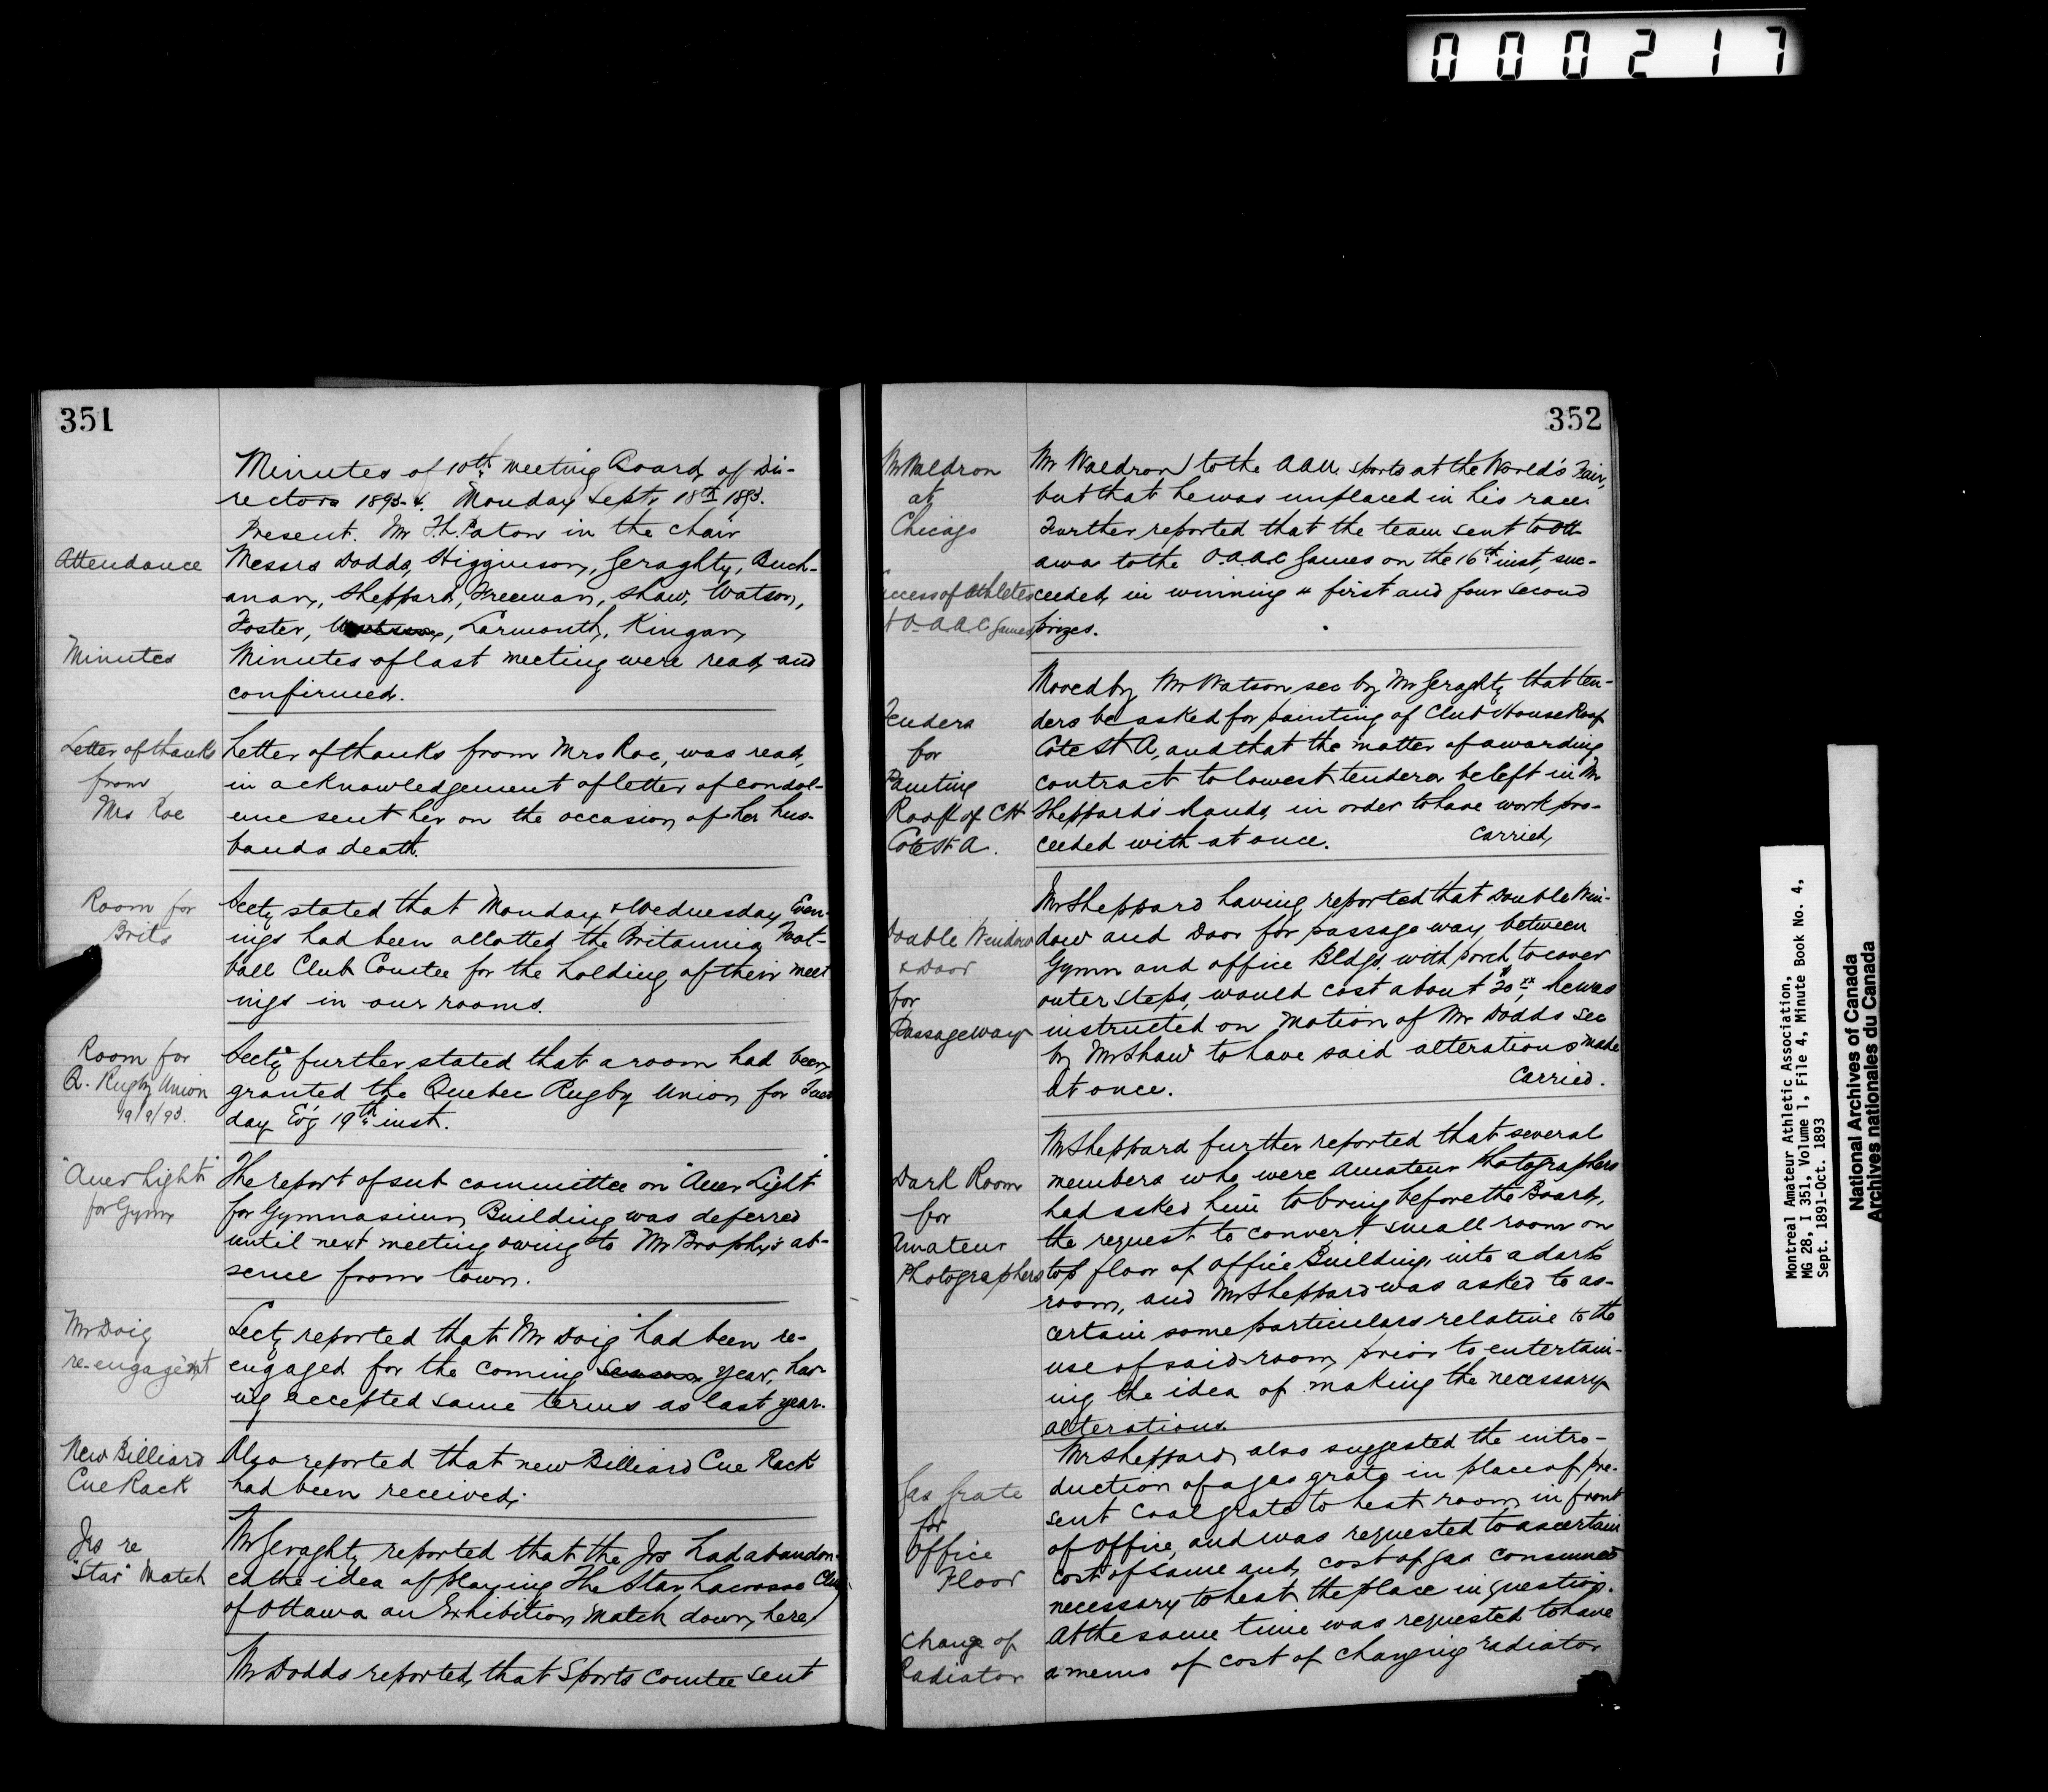 000217
351
Minutes of 10th meeting Board of Di-
rectors 1893-4. Monday Sept. 18th 1893.
Present. Mr T.L. Paton in the chair
Attendance
Messrs Dodds, Higginson, Geraghty, Buch-
anan, Sheppard, Freeman, Shaw, Watson,
Foster, Larmonth, Kingan,
Minutes
Minutes of last meeting were read and
confirmed.
Letter of thanks
from
Mrs Roe
Letter of thanks from Mrs Roe, was read,
in acknowledgement of letter of condol-
ence sent her on the occasion of her hus-
bands death.
Room for
Brits
Secty stated that Monday & Wednesday Even-
ings had been allotted the Britannia Foot-
ball Club Comtee for the holding of their meet
ings in our rooms.
Room for
Q. Rugby Union
19/9/93.
Secty further stated that a room had been
granted the Quebec Rugby Union for Tues
day Ev'g 19th inst.
"Auer Light"
for Gym
The report of sub committee on "Auer Light"
for Gymnasium Building was deferred
until next meeting owing to Mr Brophy's ab-
sence from town.
Mr Doig
re-engagem't
Secty reported that Mr Doig had been re-
engaged for the coming season year, hav-
ing accepted same terms as last year.
New Billiard
Cue Rack
Also reported that new Billiard Cue Rack
had been received;
Jrs re
"Star" Match
Mr Geraghty reported that the Jrs had abandon-
ed the idea of playing the Star Lacrosse Club
of Ottawa an Exhibition match down here
Mr Dodds reported, that Sports Comtee sent
352
Mr Waldron
at
Chicago
Mr Waldron to the A.A.U. sports at the World's Fair,
but that he was unplaced in his race.
Further reported that the team sent to Ott
awa to the O.A.A.C Games on the 16th inst, suc-
ccess of athletes
t O.A.A.C. Games
ceeded in winning first and four second
prizes.
Tenders
for
Painting
Roof of CH
Cote St A.
Moved by Mr Watson sec by Mr Geraghty that ten-
ders be asked for painting of Club House Roof
Cote St A, and that the matter of awarding
contract to lowest tenderer be left in Mr
Sheppard's hands, in order to have work pro-
ceeded with at once. Carried,
Double Window
& Door
for
Passageway
Mr Sheppard having reported that Double Win-
dow and Door for passage way between
Gymn and office Bldgs. with porch to cover
outer steps, would cost about he was
instructed on motion of Mr Dodds sec
by Mr Shaw to have said alterations made
at once. Carried.
Dark Room
for
Amateur
Photographers
Mr Sheppard further reported that several
members who were Amateur Photographers
had asked him to bring before the Board,
the request to convert small room on
top floor of office Building, into a dark
room, and Mr Sheppard was asked to as-
certain some particulars relative to the
use of said room, prior to entertain-
ing the idea of making the necessary
alterations.
Gas Grate
for
Office
Floor
Mr Sheppard, also suggested the intro-
duction of a gas grate in place of pre-
sent coal grate to heat room in front
of office, and was requested to ascertain
cost of same and, cost of gas consumed
necessary to heat the place in question.
Change of
Radiator
At the same time was requested to have
a memo of cost of changing radiator
Montreal Amateur Athletic Association,
MG 28, I 351, Volume 1, File 4, Minute Book No. 4,
Sept. 1891-Oct. 1893
National Archives of Canada
Archives nationales du Canada